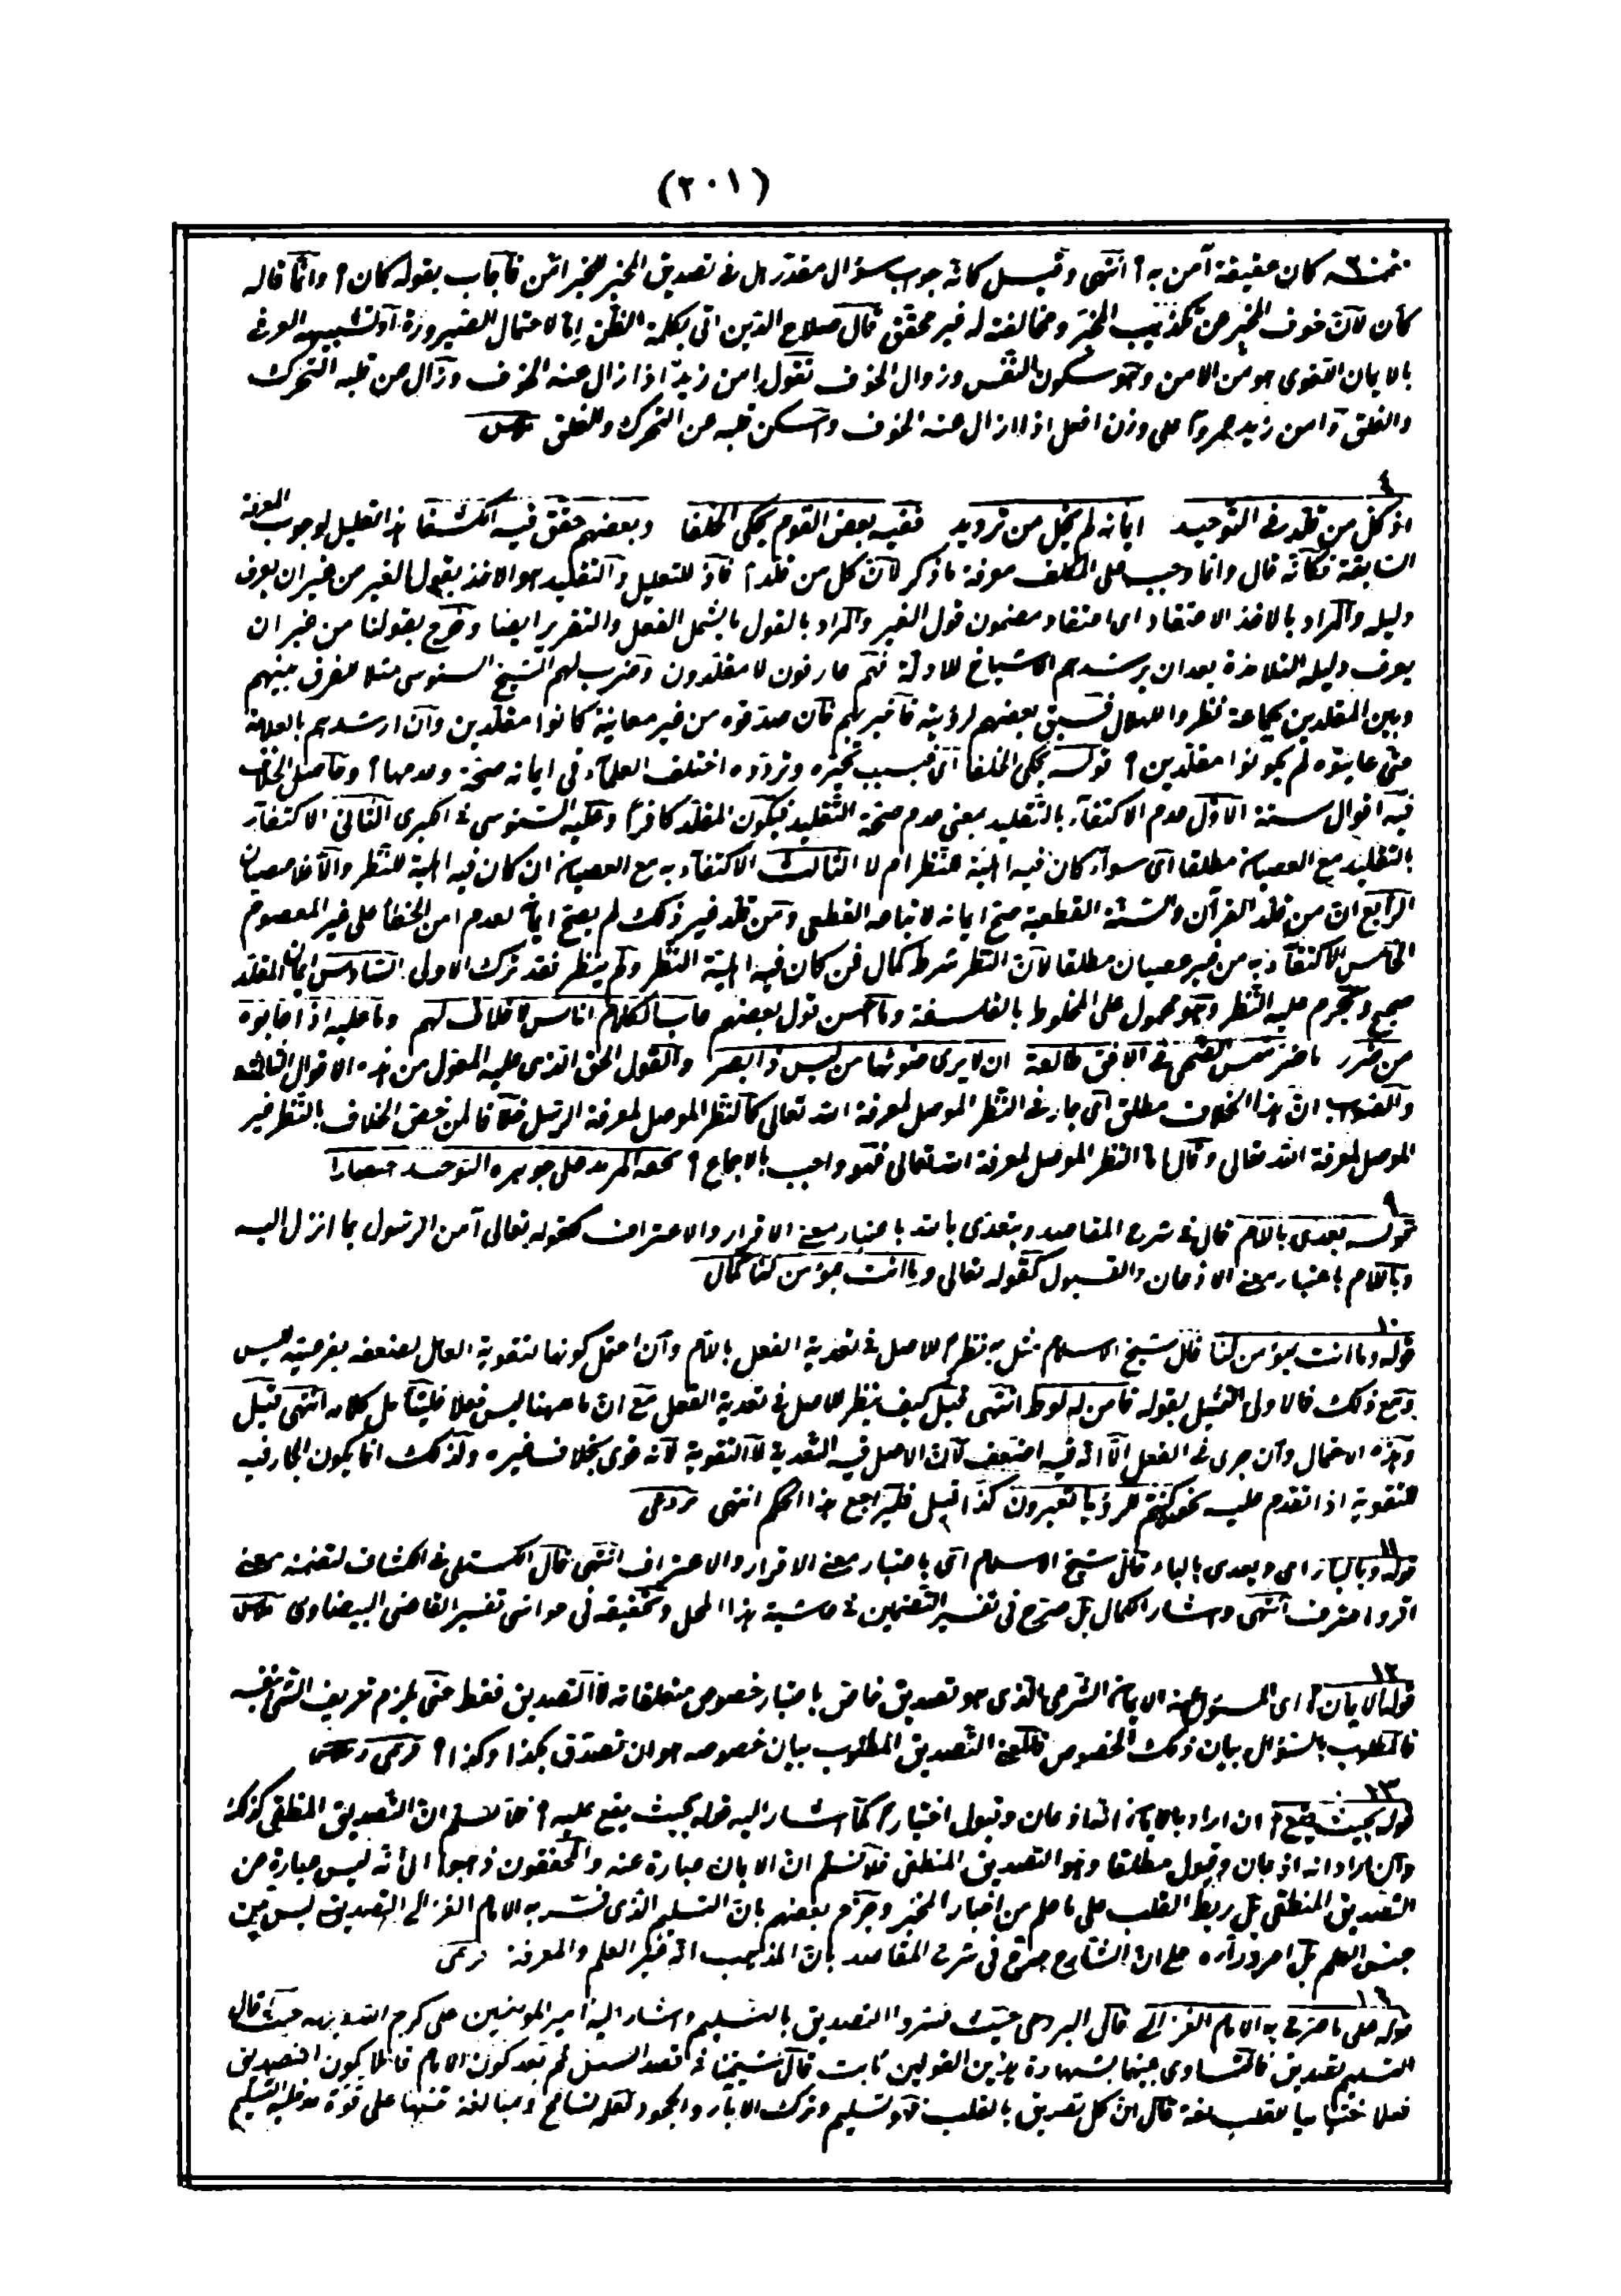 (٢٠١)
كان حقيقة آمن به ؟ انتهى وقيل كانه جواب سؤال مقدر هل فى تصديق المخبر للمخبر امن فاجاب بقوله كان ؟ وانما قاله
كأن لان خوف المخبر من تكذيب المخبر ومخالفته له غير محقق قال صلاح الدين اتى بكلمة الظن اما لاحتمال الصيرورة او تشبيه العرفى
بالايمان اللغوى هو من الامن وهو سكون النفس وزوال الخوف تقول امن زيد اذا زال عنه الخوف وزال عن قلبه التحرك
والقلق وآمن زيد عمروا على وزن افعل اذا ازال عنه الخوف واسكن قلبه عن التحرك والقلق
٤
اذ كل من قلد فى التوحيد ايمانه لم يخل من ترديد ففيه بعض القوم يحكى الخلفا وبعضهم حقق فيه الكشفا هذا تعليل لوجوب المعرفة
السابقة فكأنه قال وانما وجب على المكلف معرفة ما ذكر لان كل من قلد ؟ فاذ للتعليل والتقليد هو الاخذ بقول الغير من غير ان يعرف
دليله والمراد بالاخذ الاعتقاد اى اعتقاد مضمون قول الغير والمراد بالقول ما يشمل الفعل والتقرير ايضا وخرج بقولنا من غير ان
يعرف دليله التلامذة بعد ان يرشدهم الاشياخ للادلة فهم عارفون لا مقلدون وضرب لهم الشيخ السنوسى مثلا للفرق بينهم
وبين المقلدين بجماعة نظروا للهلال فسبق بعضهم لرؤيته فأخبرهم فان صدقوه من غير معاينة كانوا مقلدين وان ارشدهم بالعلامة
حتى عاينوه لم يكونوا مقلدين ؟ قوله يحكى الخلفا اى بسبب تحيره وتردده اختلف العلماء فى ايمانه صحة وعدمها ؟ وحاصل الخلاف
فيه اقوال ستة الاول عدم الاكتفاء بالتقليد بمعنى عدم صحة التقليد فيكون المقلد كافرا وعليه السنوسى فى الكبرى الثانى الاكتفاء
بالتقليد مع العصيان مطلقا اى سواء كان فيه اهلية للنظر ام لا الثالث الاكتفاء به مع العصيان ان كان فيه اهلية للنظر والا فلا عصيان
الرابع ان من قلد القرآن والسنة القطعية صح ايمانه لاتباعه القطعى ومن قلد غير ذلك لم يصح ايمانه لعدم امن الخطأ على غير المعصوم
الخامس الاكتفاء به من غير عصيان مطلقا لان النظر شرط كمال فمن كان فيه اهلية النظر ولم ينظر فقد ترك الاولى السادس ايمان المقلد
صحيح ويحرم عليه النظر وهو محمول على المخلوط بالفلسفة وما احسن قول بعضهم عاب الكلام اناس لا خلاق لهم وما عليه اذا عابوه
من ضرر ما ضر شمس الضحى فى الافق طالعة ان لا يرى ضوئها من ليس ذا بصر والقول الحق الذى عليه المعول من هذه الاقوال الثالث
والصواب ان هذا الخلاف مطلق اى جار فى النظر الموصل لمعرفة الله تعالى كالنظر الموصل لمعرفة الرسل خلافا لمن خص الخلاف بالنظر غير
الموصل لمعرفة الله تعالى وقال اما النظر الموصل لمعرفة الله تعالى فهو واجب بالاجماع ؟ تحفة المريد على جوهرة التوحيد
٩
قوله يعدى باللام قال فى شرح المقاصد ويتعدى بالباء باعتبار معنى الاقرار والاعتراف كقوله تعالى آمن الرسول بما انزل اليه
وباللام باعتبار معنى الاذعان والقبول كقوله تعالى وما انت بمؤمن لنا كمال
١٠
قوله وما انت بمؤمن لنا قال شيخ الاسلام مثل به نظرا للاصل فى تعدية الفعل باللام وان احتمل كونها لتقوية العامل لضعفه بفرعيته ليس
ومع ذلك فالاولى التمثيل بقوله فآمن له لوط انتهى قيل كيف ينظر للاصل فى تعدية الفعل مع ان ما ههنا ليس فعلا فليتأمل كلامه انتهى قيل
وهذه الاحتمال وان جرى فى الفعل الا انه فيه اضعف لان الاصل فيه التعدية لا التقوية لانه قوى بخلاف غيره ولذلك انما يكون الجار فيه
للتقوية اذا تقدم عليه نحو ان كنتم للرؤيا تعبرون كذا قيل فليراجع هذا الحكم انتهى
١١
قوله وبالباء اى ويعدى بالباء قال شيخ الاسلام اى باعتبار معنى الاقرار والاعتراف انتهى قال الكستلى فى الكشاف لتضمنه معنى
اقر واعترف انتهى واشار الكمال بل صرح فى تفسير التضمين فى حاشية هذا المحل وتحقيقه فى حواشى تفسير القاضى البيضاوى
١٢
قوله الايمان ؟ اى المسئول عنه الايمان الشرعى الذى هو تصديق خاص باعتبار خصوص متعلقاته لا التصديق فقط حتى يلزم تعريف الشئ بنفسه
فالمطلوب بالسؤال بيان ذلك الخصوص فالمعنى التصديق المطلوب بيان خصوصه هو ان تصدق بكذا وكذا ؟
١٣
قوله بحيث يقع ؟ ان اراد بالايمان انه اذعان وقبول اختيارا كما اشار اليه قوله بحيث يقع عليه ؟ فلا نسلم ان التصديق المنطقى كذلك
وان اراد انه اذعان وقبول مطلقا وهو التصديق المنطقى فلا نسلم ان الايمان عبارة عنه والمحققون ذهبوا الى انه ليس عبارة عن
التصديق المنطقى بل ربط القلب على ما علم من اخبار المخبر وجزم بعضهم بان التسليم الذى فسر به الامام الغزالى التصديق ليس من
جنس العلم بل امر وراءه على ان الشارح صرح فى شرح المقاصد بان المذهب انه غير العلم والمعرفة
قوله على ما صرح به الامام الغزالى قال البردعى حيث فسروا التصديق بالتسليم واشار اليه امير المؤمنين على كرم الله وجهه حيث قال
التسليم تصديق فالتساوى بينهما بشهادة هذين القولين ثابت قال شيخنا فى لم يعد كون الامام قائلا بكون التصديق
فعلا اختياريا للقلب لغة قال ان كل تصديق بالقلب فهو تسليم وترك الاباء والجحود لعله تسامح ومبالغة تنبها على قوة مدخلية التسليم